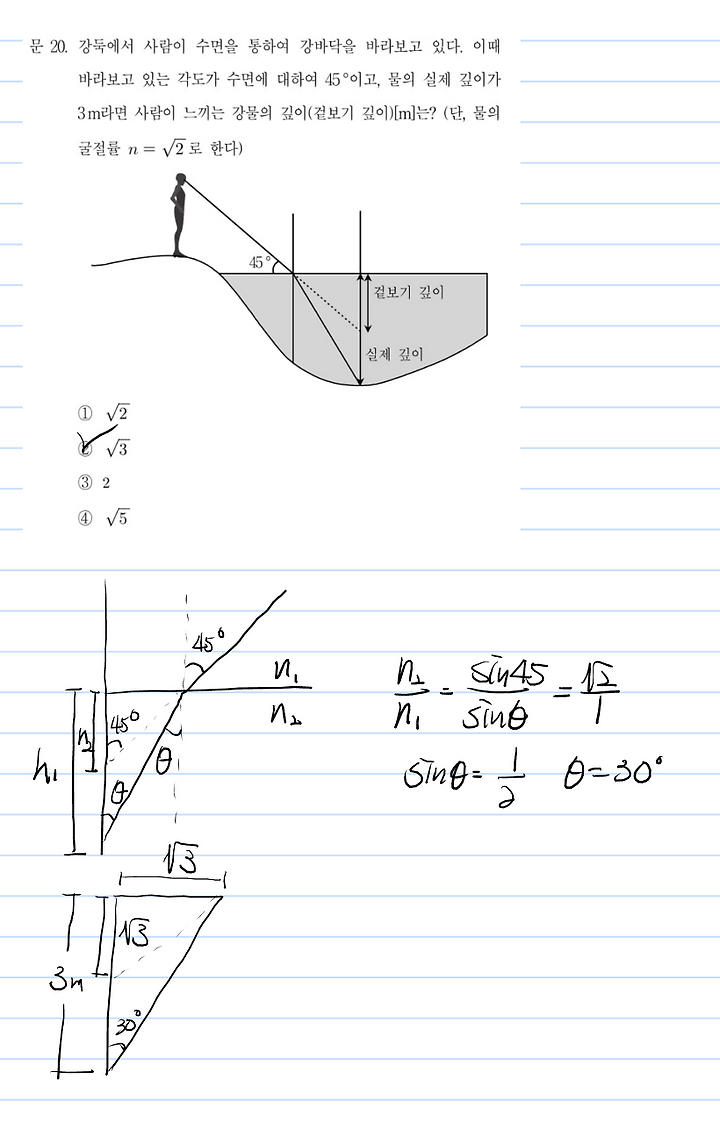 문 20. 강둑에서 사람이 수면을 통하여 강바닥을 바라보고 있다. 이때
바라보고 있는 각도가 수면에 대하여 45°이고, 물의 실제 깊이가
3m라면 사람이 느끼는 강물의 깊이(겉보기 깊이)[m]는? (단, 물의
굴절률 n = √2 로 한다)
45°
겉보기 깊이
실제 깊이
① √2
② √3
③ 2
④ √5
45°
n₁
n₂
45°
h₂
h₁
θ
θ
n₂/n₁ = sin45/sinθ = √2/1
sinθ = 1/2 θ=30°
√3
√3
3m
30°